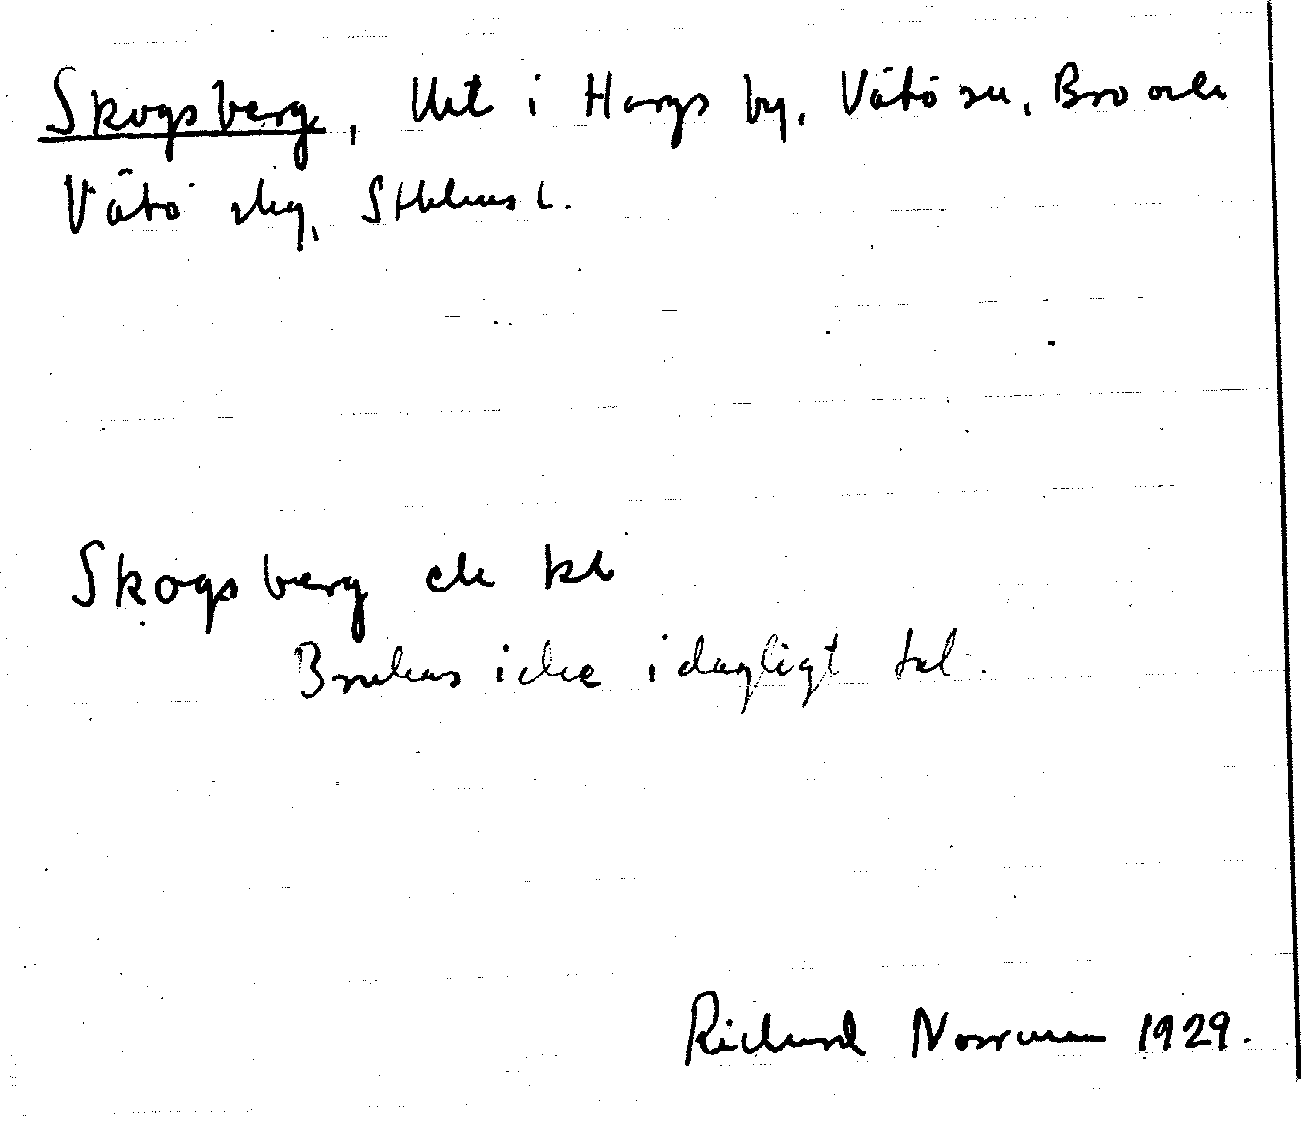 Skogsberg, Uet i Hargs by, Vätö sn, Bro och
Vätö slg, Sthlms l.
Skogsberg ek kl
Brukas icke i dagligt tal.
Richard Norrman 1929.